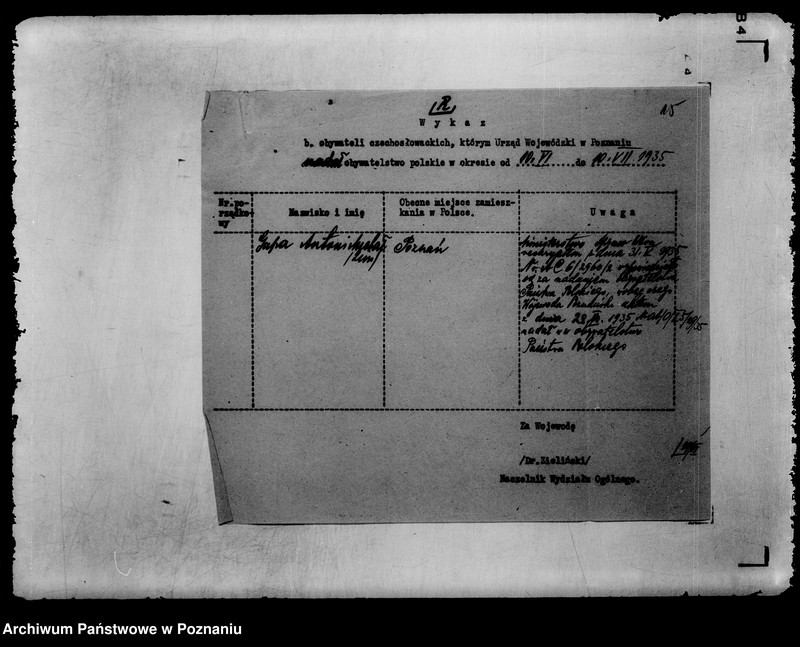 B4
(R)
15
Wykaz
b. obywateli czechosłowackich, którym Urząd Wojewódzki w Poznaniu
nadał obywatelstwo polskie w okresie od 10.VI do 10.VII.1935
Nr.po-
rządko-
wy
Nazwisko i imię
Obecne miejsce zamiesz-
kania w Polsce.
Uwaga
Poznań
Ministerstwo Spraw Wewn
z dnia 31.V 1935
od za nadaniem
Państwa Polskiego, wobec czego
Wojewoda Poznański aktem
z dnia 28 1935
nadał obywatelstwo
Państwa Polskiego
Za Wojewodę
/Dr.Zieliński/
Naczelnik Wydziału Ogólnego.
Archiwum Państwowe w Poznaniu